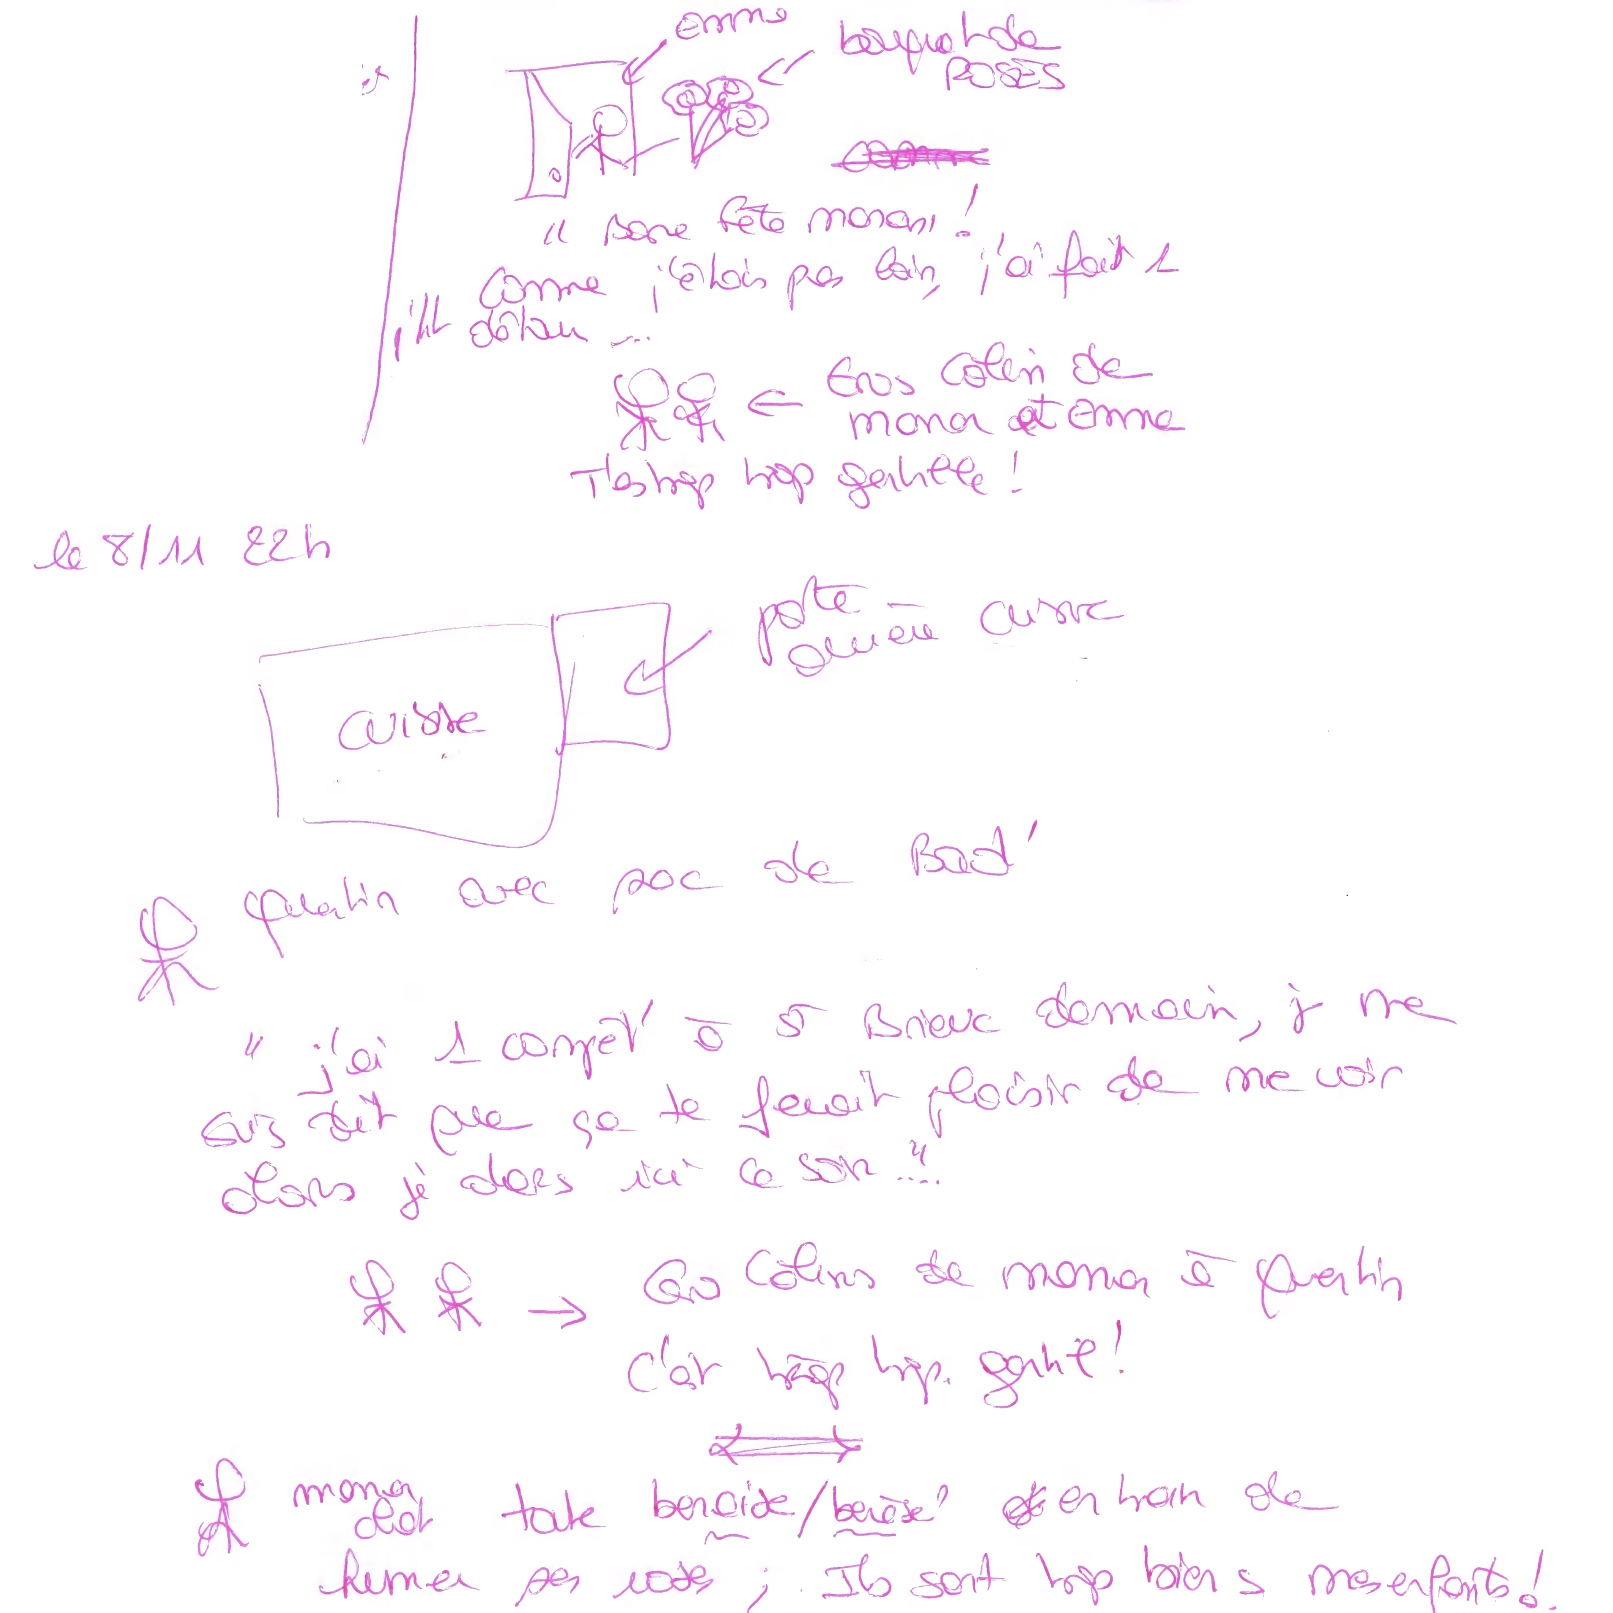 emma
bouquet de
ROSES
" Bone fête maman !
comme j'étais pas loin, j'ai fait 1
détour ...
← Gros Calin de
maman et emma
T'es trop trop gentille !
le 8/11 22h
porte
arrière cuisine
cuisine
quentin avec sac de Bad'
" j'ai 1 compèt' à St Brieuc demain, j me
suis dit que ça te ferait plaisir de me voir
alors je dors ici ce soir "...
→ Gros Calins de maman à quentin
C'est trop trop gentil !
maman
dort toute en train de
humer ses roses ; Ils sont trop biens mes enfants !